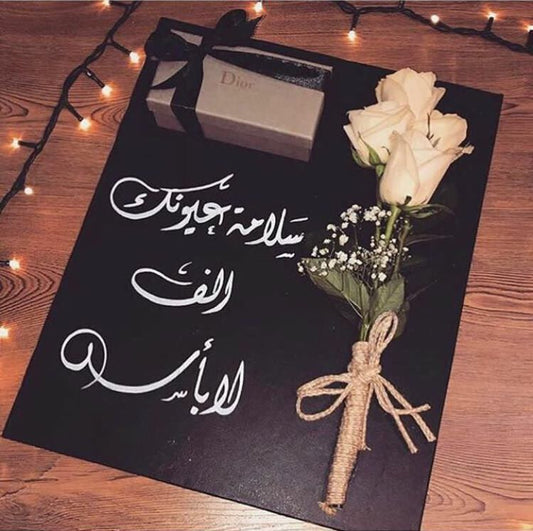 Dior
سَلامة عيونك
الف
لا بأس